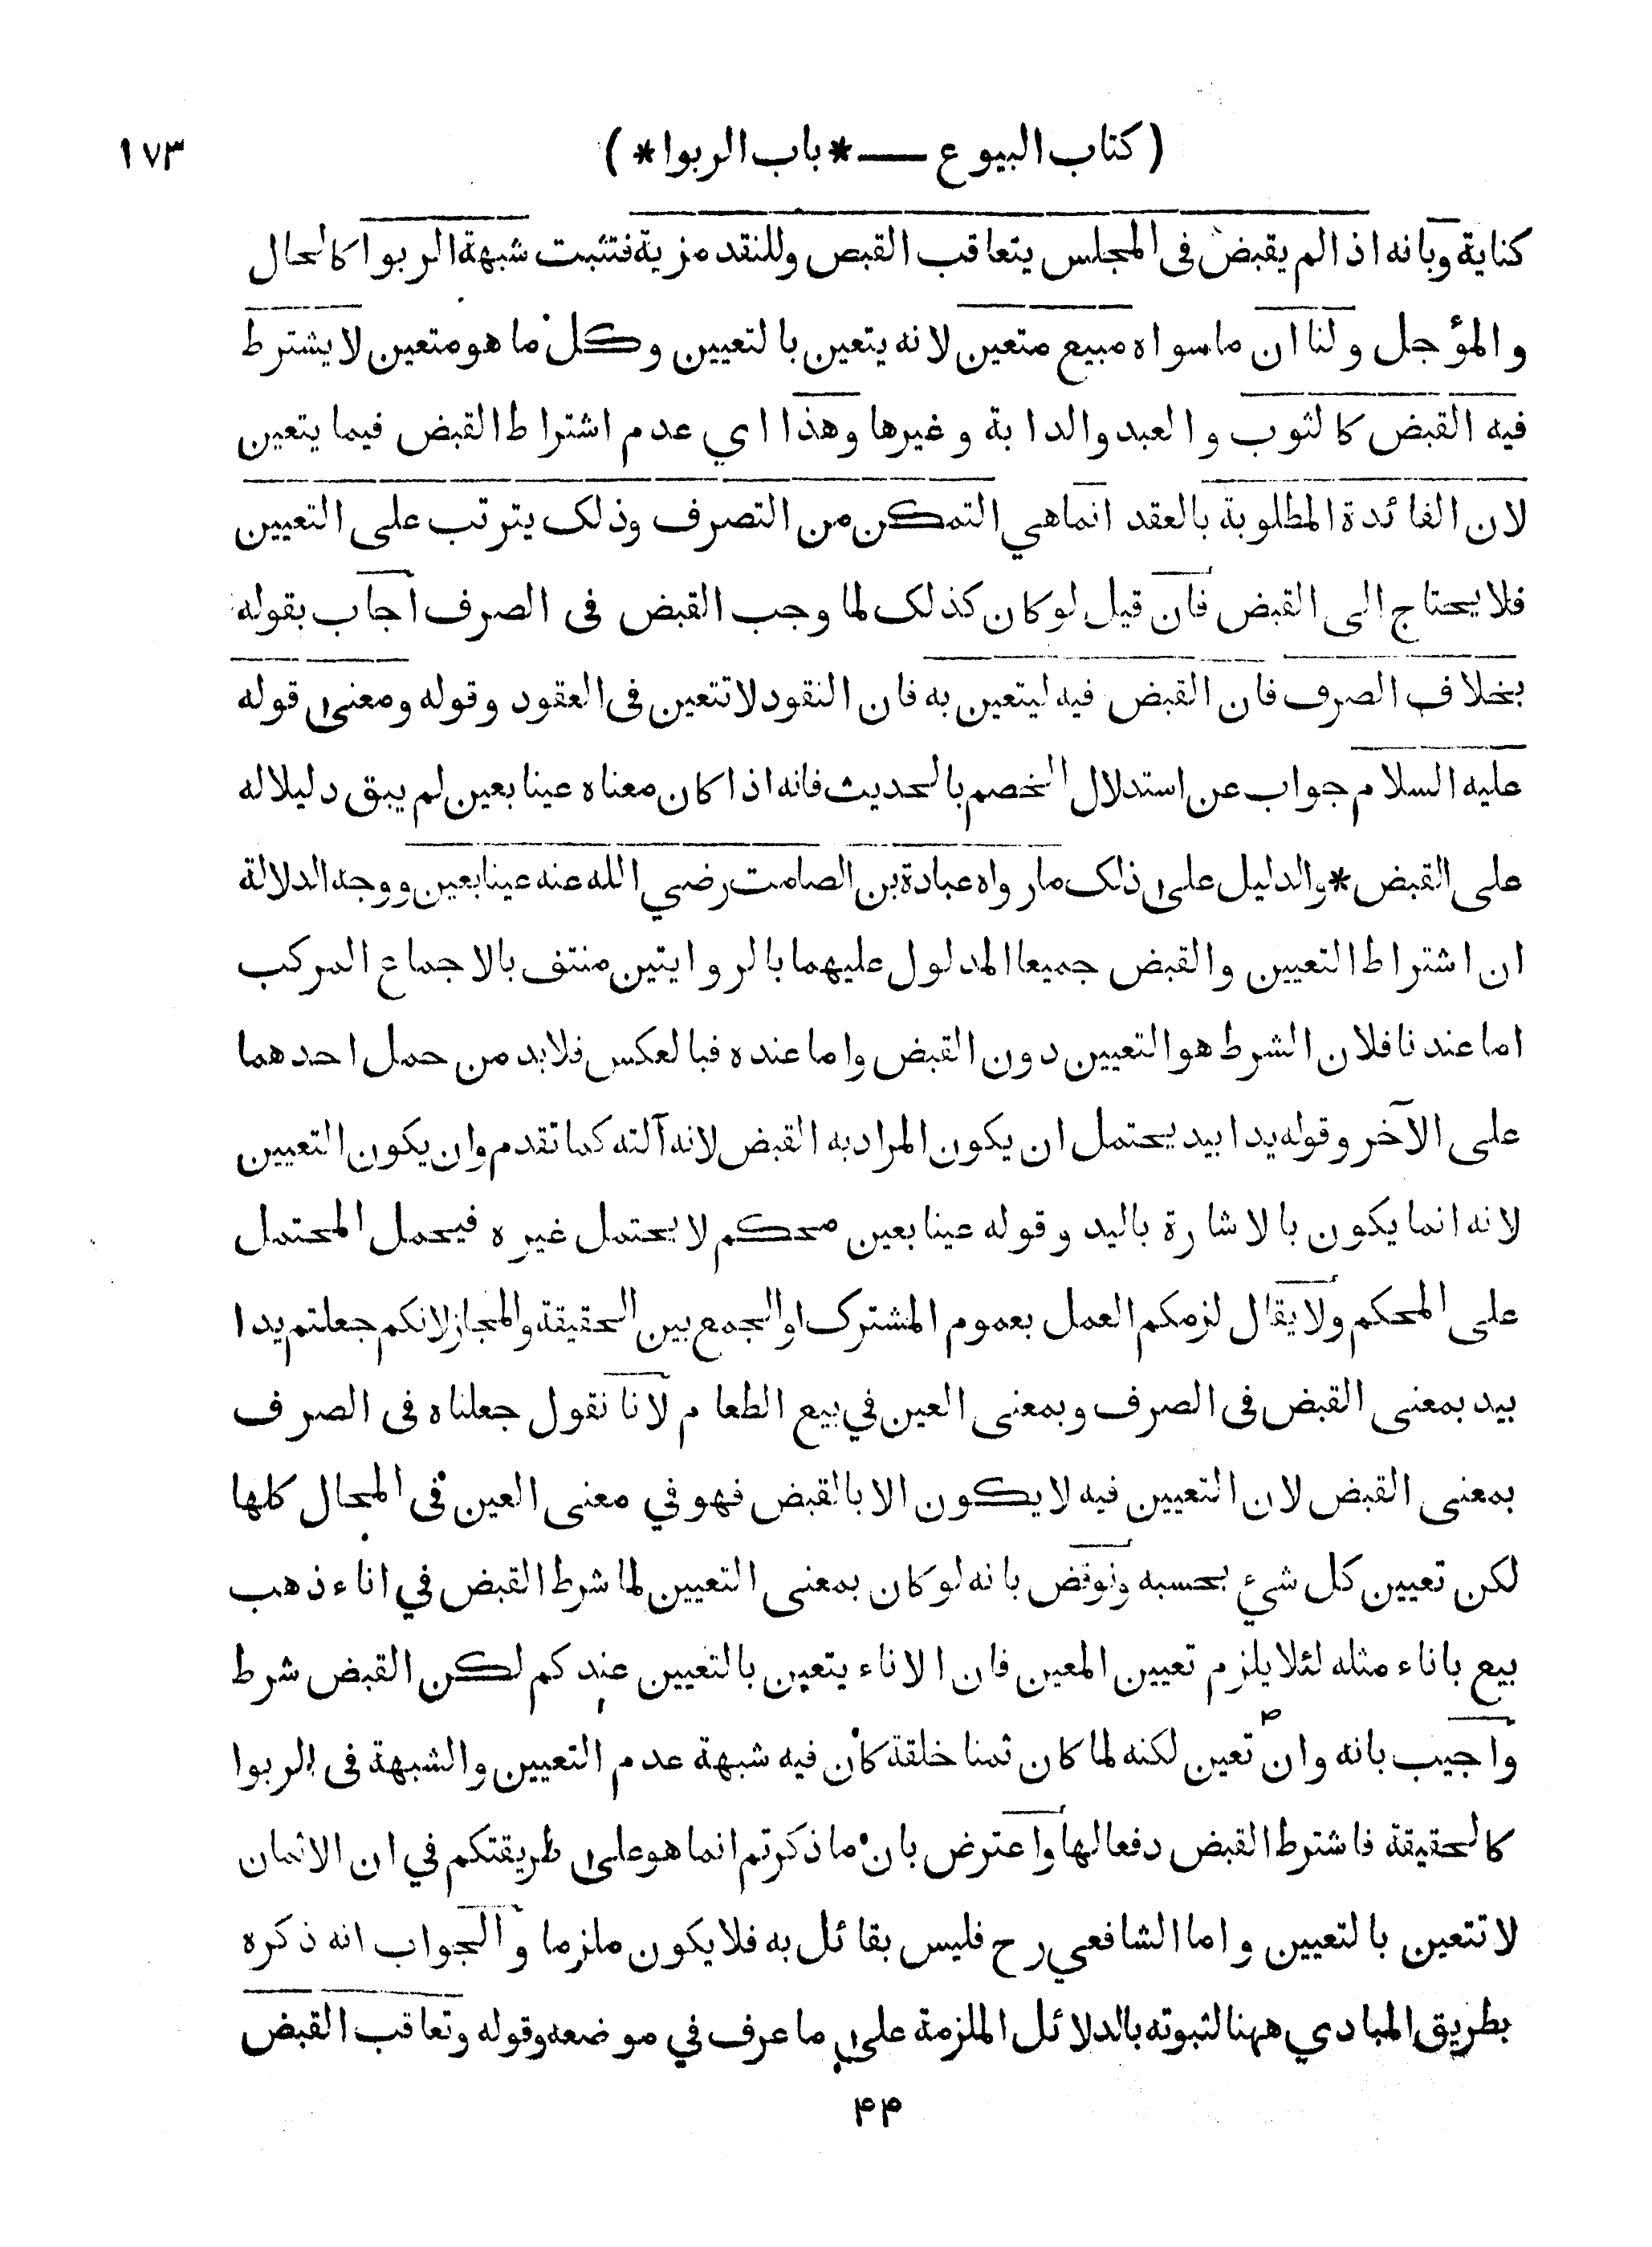 (كتاب البيوع — *باب الربوا*) ١٧٣
كناية وبانه اذا لم يقبض فى المجلس يتعاقب القبض وللنقد مزية فتثبت شبهة الربوا كالحال
والمؤجل ولنا ان ما سواه مبيع متعين لانه يتعين بالتعيين وكل ما هو متعين لا يشترط
فيه القبض كالثوب والعبد والدابة وغيرها وهذا اي عدم اشتراط القبض فيما يتعين
لان الفائدة المطلوبة بالعقد انما هي التمكن من التصرف وذلك يترتب على التعيين
فلا يحتاج الى القبض فان قيل لو كان كذلك لما وجب القبض فى الصرف اجاب بقوله
بخلاف الصرف فان القبض فيه ليتعين به فان النقود لا تتعين فى العقود وقوله ومعنى قوله
عليه السلام جواب عن استدلال الخصم بالحديث فانه اذا كان معناه عينا بعين لم يبق دليلا له
على القبض * والدليل على ذلك ما رواه عبادة بن الصامت رضي الله عنه عينا بعين ووجه الدلالة
ان اشتراط التعيين والقبض جميعا المدلول عليهما بالروايتين منتف بالاجماع المركب
اما عندنا فلان الشرط هو التعيين دون القبض واما عنده فبالعكس فلا بد من حمل احدهما
على الآخر وقوله يدا بيد يحتمل ان يكون المراد به القبض لانه آلته كما تقدم وان يكون التعيين
لانه انما يكون بالاشارة باليد وقوله عينا بعين محكم لا يحتمل غيره فيحمل المحتمل
على المحكم ولا يقال لزمكم العمل بعموم المشترك او الجمع بين الحقيقة والمجاز لانكم جعلتم يدا
بيد بمعنى القبض فى الصرف وبمعنى العين في بيع الطعام لانا نقول جعلناه فى الصرف
بمعنى القبض لان التعيين فيه لا يكون الا بالقبض فهو في معنى العين فى المحال كلها
لكن تعيين كل شيء بحسبه ونوقض بانه لو كان بمعنى التعيين لما شرط القبض في اناء ذهب
بيع باناء مثله لئلا يلزم تعيين المعين فان الاناء يتعين بالتعيين عندكم لكن القبض شرط
واجيب بانه وان تعين لكنه لما كان ثمنا خلقة كان فيه شبهة عدم التعيين والشبهة فى الربوا
كالحقيقة فاشترط القبض دفعا لها واعترض بان ما ذكرتم انما هو على طريقتكم في ان الاثمان
لا تتعين بالتعيين واما الشافعي رح فليس بقائل به فلا يكون ملزما والجواب انه ذكره
بطريق المبادي ههنا لثبوته بالدلائل الملزمة على ما عرف في موضعه وقوله وتعاقب القبض
۴۴